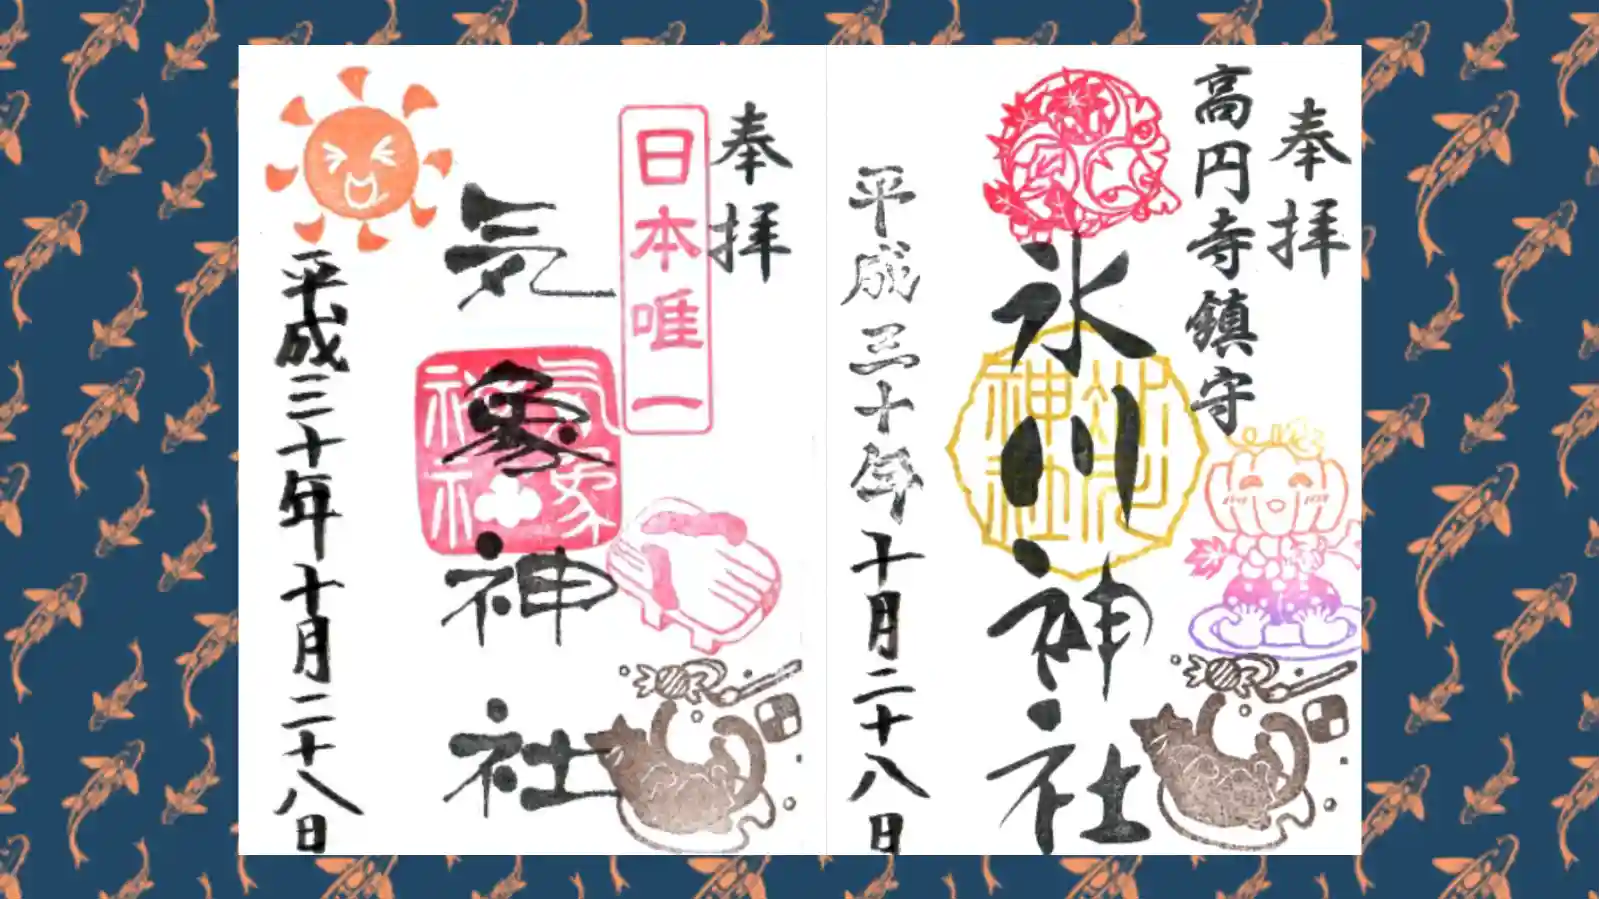 奉拝
高円寺鎮守
氷川神社
平成三十年十月二十八日
奉拝
日本唯一
気象神社
平成三十年十月二十八日
気象神社